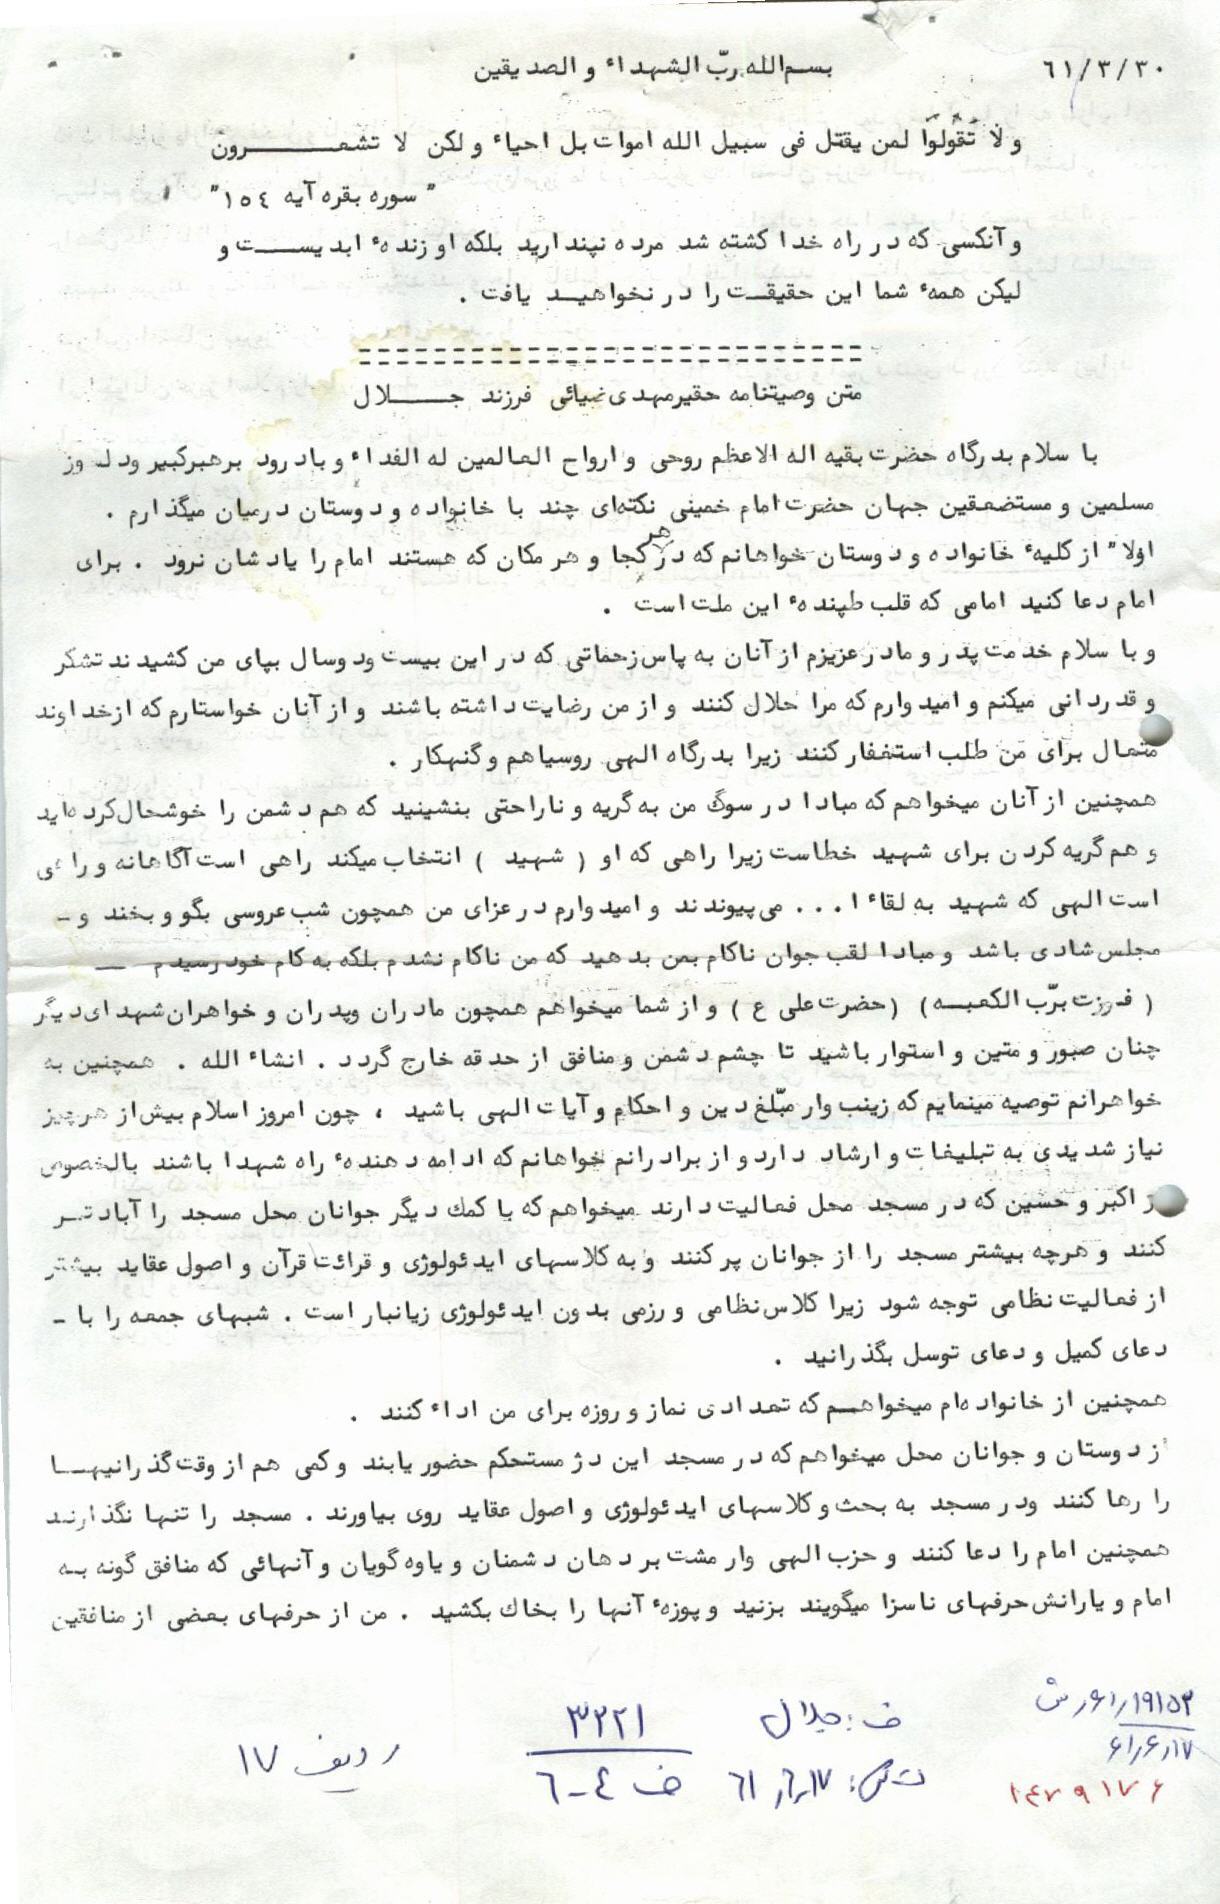 ۶۱/۳/۳۰
بسم‌الله ربّ الشهداء و الصدیقین
و لا تَقُولُوا لمن یقتل فی سبیل الله اموات بل احیاء و لکن لا تشعرون
" سوره بقره آیه ۱۵٤ "
و آنکسی که در راه خدا کشته شد مرده نپندارید بلکه او زندهٔ ابدیست و
لیکن همهٔ شما این حقیقت را در نخواهید یافت .
متن وصیتنامه حقیر مهدی ضیائی فرزند جلال
با سلام بدرگاه حضرت بقیه اله الاعظم روحی و ارواح العالمین له الفداء و با درود بر رهبر کبیر و دلسوز
مسلمین و مستضعفین جهان حضرت امام خمینی نکته‌ای چند با خانواده و دوستان درمیان میگذارم .
اولا" از کلیهٔ خانواده و دوستان خواهانم که در هر کجا و هر مکان که هستند امام را یادشان نرود . برای
امام دعا کنید امامی که قلب طپندهٔ این ملت است .
و با سلام خدمت پدر و مادر عزیزم از آنان به پاس زحماتی که در این بیست ودوسال بپای من کشیدند تشکر
و قدردانی میکنم و امیدوارم که مرا حلال کنند و از من رضایت داشته باشند و از آنان خواستارم که ازخداوند
متعال برای من طلب استغفار کنند زیرا بدرگاه الهی روسیاهم و گنهکار .
همچنین از آنان میخواهم که مبادا در سوگ من به گریه و ناراحتی بنشینید که هم دشمن را خوشحال کرده‌اید
و هم گریه کردن برای شهید خطاست زیرا راهی که او ( شهید ) انتخاب میکند راهی است آگاهانه و راهی
است الهی که شهید به لقاء ا . . . می‌پیوندند و امیدوارم در عزای من همچون شب عروسی بگو و بخند و -
مجلس شادی باشد و مبادا لقب جوان ناکام بمن بدهید که من ناکام نشدم بلکه به کام خود رسیدم —
( فزت برّب الکعبه ) (حضرت علی ع ) و از شما میخواهم همچون مادران وپدران و خواهران شهدای دیگر
چنان صبور و متین و استوار باشید تا چشم دشمن و منافق از حدقه خارج گردد . انشاء الله . همچنین به
خواهرانم توصیه مینمایم که زینب وار مبّلغ دین و احکام و آیات الهی باشید ، چون امروز اسلام بیش از هرچیز
نیاز شدیدی به تبلیغات و ارشاد دارد و از برادرانم خواهانم که ادامه دهندهٔ راه شهدا باشند بالخصوص
اکبر و حسین که در مسجد محل فعالیت دارند میخواهم که با کمك دیگر جوانان محل مسجد را آبادتر
کنند و هرچه بیشتر مسجد را از جوانان پر کنند و به کلاسهای ایدئولوژی و قرائت قرآن و اصول عقاید بیشتر
از فعالیت نظامی توجه شود زیرا کلاس نظامی و رزمی بدون ایدئولوژی زیانبار است . شبهای جمعه را با -
دعای کمیل و دعای توسل بگذرانید .
همچنین از خانواده‌ام میخواهم که تعدادی نماز و روزه برای من اداء کنند .
از دوستان و جوانان محل میخواهم که در مسجد این دژ مستحکم حضور یابند و کمی هم از وقت گذرانیها
را رها کنند ودر مسجد به بحث و کلاسهای ایدئولوژی و اصول عقاید روی بیاورند . مسجد را تنها نگذارند
همچنین امام را دعا کنند و حزب الهی وار مشت بر دهان دشمنان و یاوه گویان و آنهائی که منافق گونه به
امام و یارانش حرفهای ناسزا میگویند بزنید و پوزهٔ آنها را بخاك بکشید . من از حرفهای بعضی از منافقین
۱۹۱۵۳
۶۱٫۶٫۱۷
۱۴۷۹۱۷۶
ف : جلال
ت ش : ۶۱٫۶٫۱۷
۳۲۲۱
ف ٤ - ٦
ردیف ۱۷